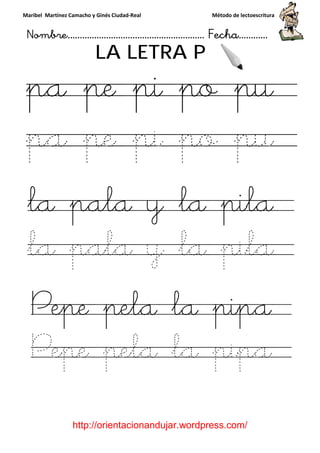 Maribel Martínez Camacho y Ginés Ciudad-Real Método de lectoescritura
Nombre........................................................ Fecha...........
LA LETRA P
pa pe pi po pu
pa pe pi po pu
la pala y la pila
la pala y la pila
Pepe pela la pipa
Pepe pela la pipa
http://orientacionandujar.wordpress.com/